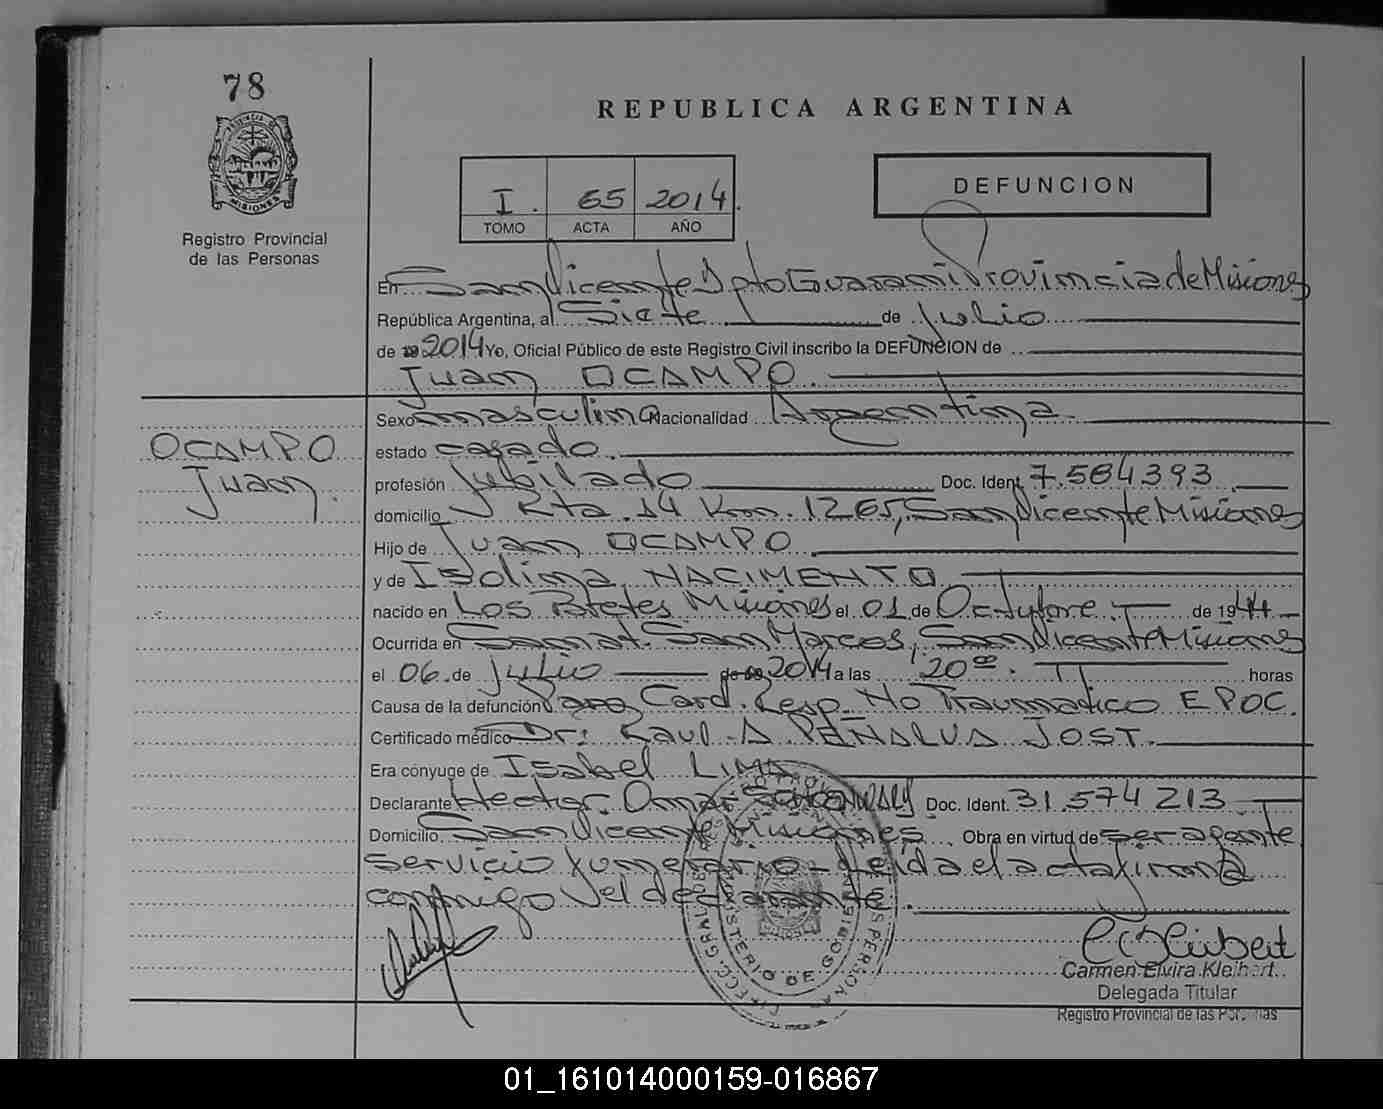 78
PROVINCIA DE
MISIONES
Registro Provincial
de las Personas
REPUBLICA ARGENTINA
I. 65 2014.
TOMO ACTA AÑO
DEFUNCION
En San Vicente Dpto Guaraní Provincia de Misiones
República Argentina, al Siete de Julio
de 2014 Yo, Oficial Público de este Registro Civil inscribo la DEFUNCION de
Juan OCAMPO.
Sexo masculino Nacionalidad Argentina
OCAMPO
Juan.
estado casado.
profesión Jubilado Doc. Ident. 7.584.393
domicilio Rta. 14 Km. 1265, San Vicente Misiones
Hijo de Juan OCAMPO
y de Isolina NACIMENTO
nacido en Los Misiones el 01 de Octubre de 1944
Ocurrida en Sanat. San Marcos, San Vicente Misiones
el 06 de Julio de 2014 a las 20 00. horas
Causa de la defunción Paro Card. Resp. No Traumatico EPOC.
Certificado médico Dr: Raul A PEÑALVA JOST.
Era cónyuge de Isabel LIMA
Declarante Hector Omar Doc. Ident. 31.574.213
Domicilio San Vicente Misiones. Obra en virtud de ser agente
servicio funerario - Leída el acta firma
conmigo el declarante.
MINISTERIO DE GOBIERNO
Carmen Elvira Kleibert
Delegada Titular
Registro Provincial de las Personas
01_161014000159-016867